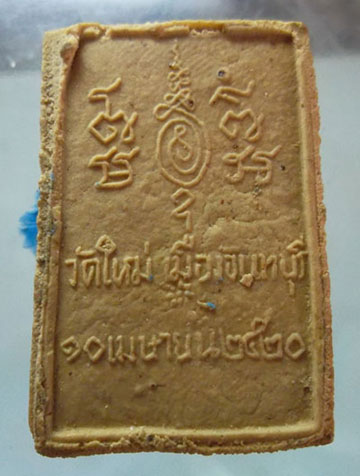 วัดใหม่ เมืองจันทบุรี
๑๐ เมษายน ๒๕๒๐